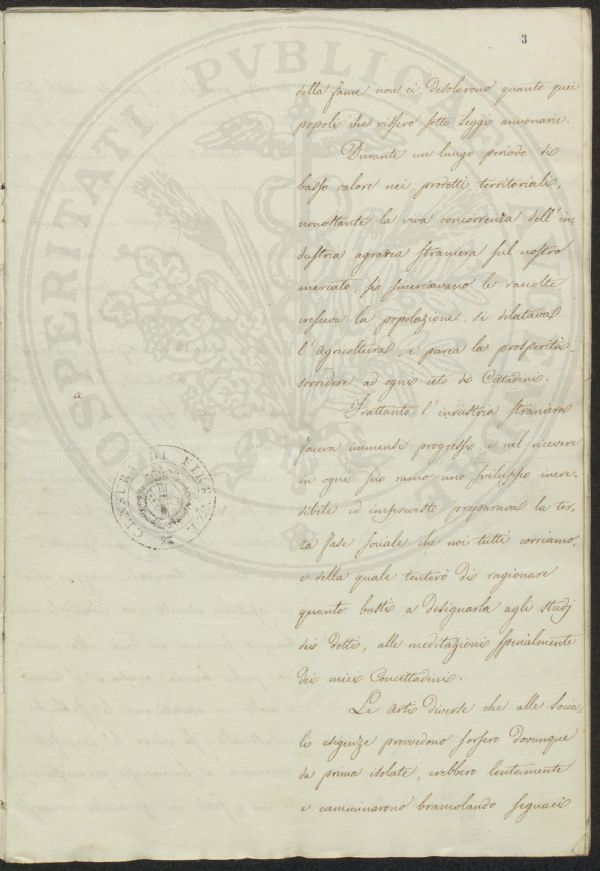 3
della fame non ci desolarono quanto quei
popoli che vissero sotto Leggi annonarie.
Durante un lungo periodo di
basso valore nei prodotti territoriali,
nonostante la viva concorrenza dell'in,
dustria agraria straniera sul nostro
mercato, si smerciavano le raccolte,
cresceva la popolazione, si dilatava
l'Agricoltura, e parea la prosperità
sorridere ad ogni ceto di Cittadini.
Frattanto l'industria straniera
faceva immensi progressi e nel ricevere
in ogni suo ramo uno sviluppo incre-
dibile ed imprevisto preparava la ter-
za fase sociale che noi tutti corriamo,
e della quale tenterò di ragionare
quanto basti a designarla agli studj
dei dotti, alle meditazioni specialmente
dei miei Concittadini.
Le Arti diverse che alle socia-
li esigenze provvedono sorsero dovunque
da prima isolate, crebbero lentamente
e camminarono brancolando seguaci
CENSURA DI FIRENZE
PROSPERITATI PVBLICAE